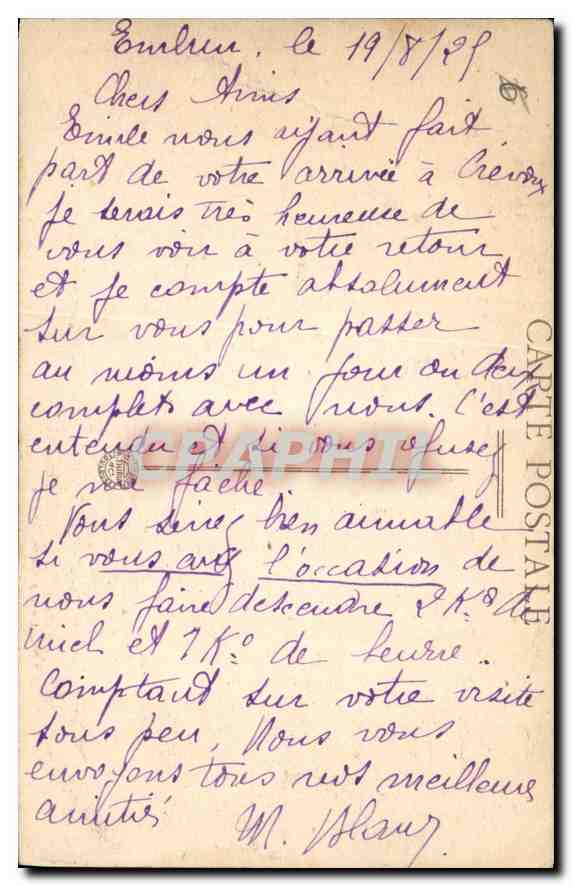 Embrun, le 19/8/25
Chers Amis
Emile nous ayant fait
part de votre arrivée à Crévoux
je serais très heureuse de
vous voir à votre retour
et je compte absolument
sur vous pour passer
au moins un jour ou deux
complets avec nous. C'est
entendu et si vous refusez
je me fâche
Vous seriez bien aimable
si vous avez l'occasion de
nous faire descendre 2 Kos de
miel et 1 Ko de beurre.
Comptant sur votre visite
sous peu, Nous vous
envoyons tous nos meilleures
amitiés
M. Blanc
CARTE POSTALE
CPAPHIL